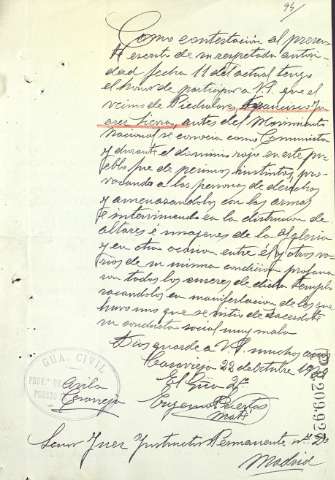 94/
Como contestación al presen
te escrito de su respetada autori
dad fecha 11 del actual tengo
el honor de participar a V.S. que el
vecino de Piedralaves, Francisco
Sierra, antes del Movimiento
Nacional se conocía como Comunista
y durante el dominio rojo en este pue
blo fue de perversos instintos, pro
vocando a las personas de derechas
y amenazandolas con las armas
e interviniendo en la destrucción de
altares é imagenes de la Iglesia
y en otra ocasion entre él y otros va
rios de su misma condicion profana
ron todos los enseres de dicho templo
sacandolos en manifestacion de los que
hubo uno que se vistio de Sacerdote
su conducta social muy mala.
Dios guarde a V.S. muchos años
Casavieja 22 de Octubre 1939
El
Eugenio
GUA. CIVIL
Avila
209.92
Señor Juez Instructor Permanente nº
Madrid